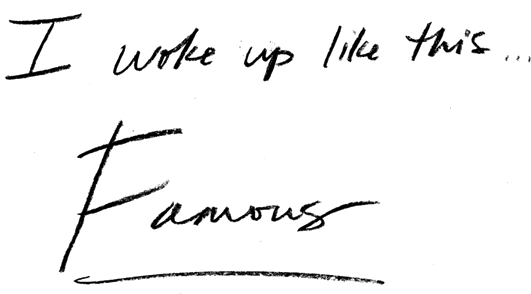 I woke up like this...
Famous